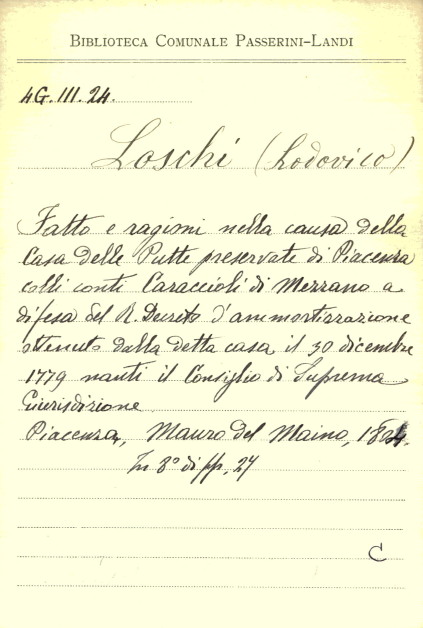 BIBLIOTECA COMUNALE PASSERINI-LANDI
4G.III.24.
Loschi (Lodovico)
Fatto e ragioni nella causa della
Casa delle Putte preservate di Piacenza
colli conti Caraccioli di Merrano a
difesa del R. Decreto d'ammortizzazione
ottenuto dalla detta casa il 30 dicembre
1779 nanti il Consiglio di Suprema
Giurisdizione.
Piacenza, Mauro del Maino,
In 8° di pp. 27
C